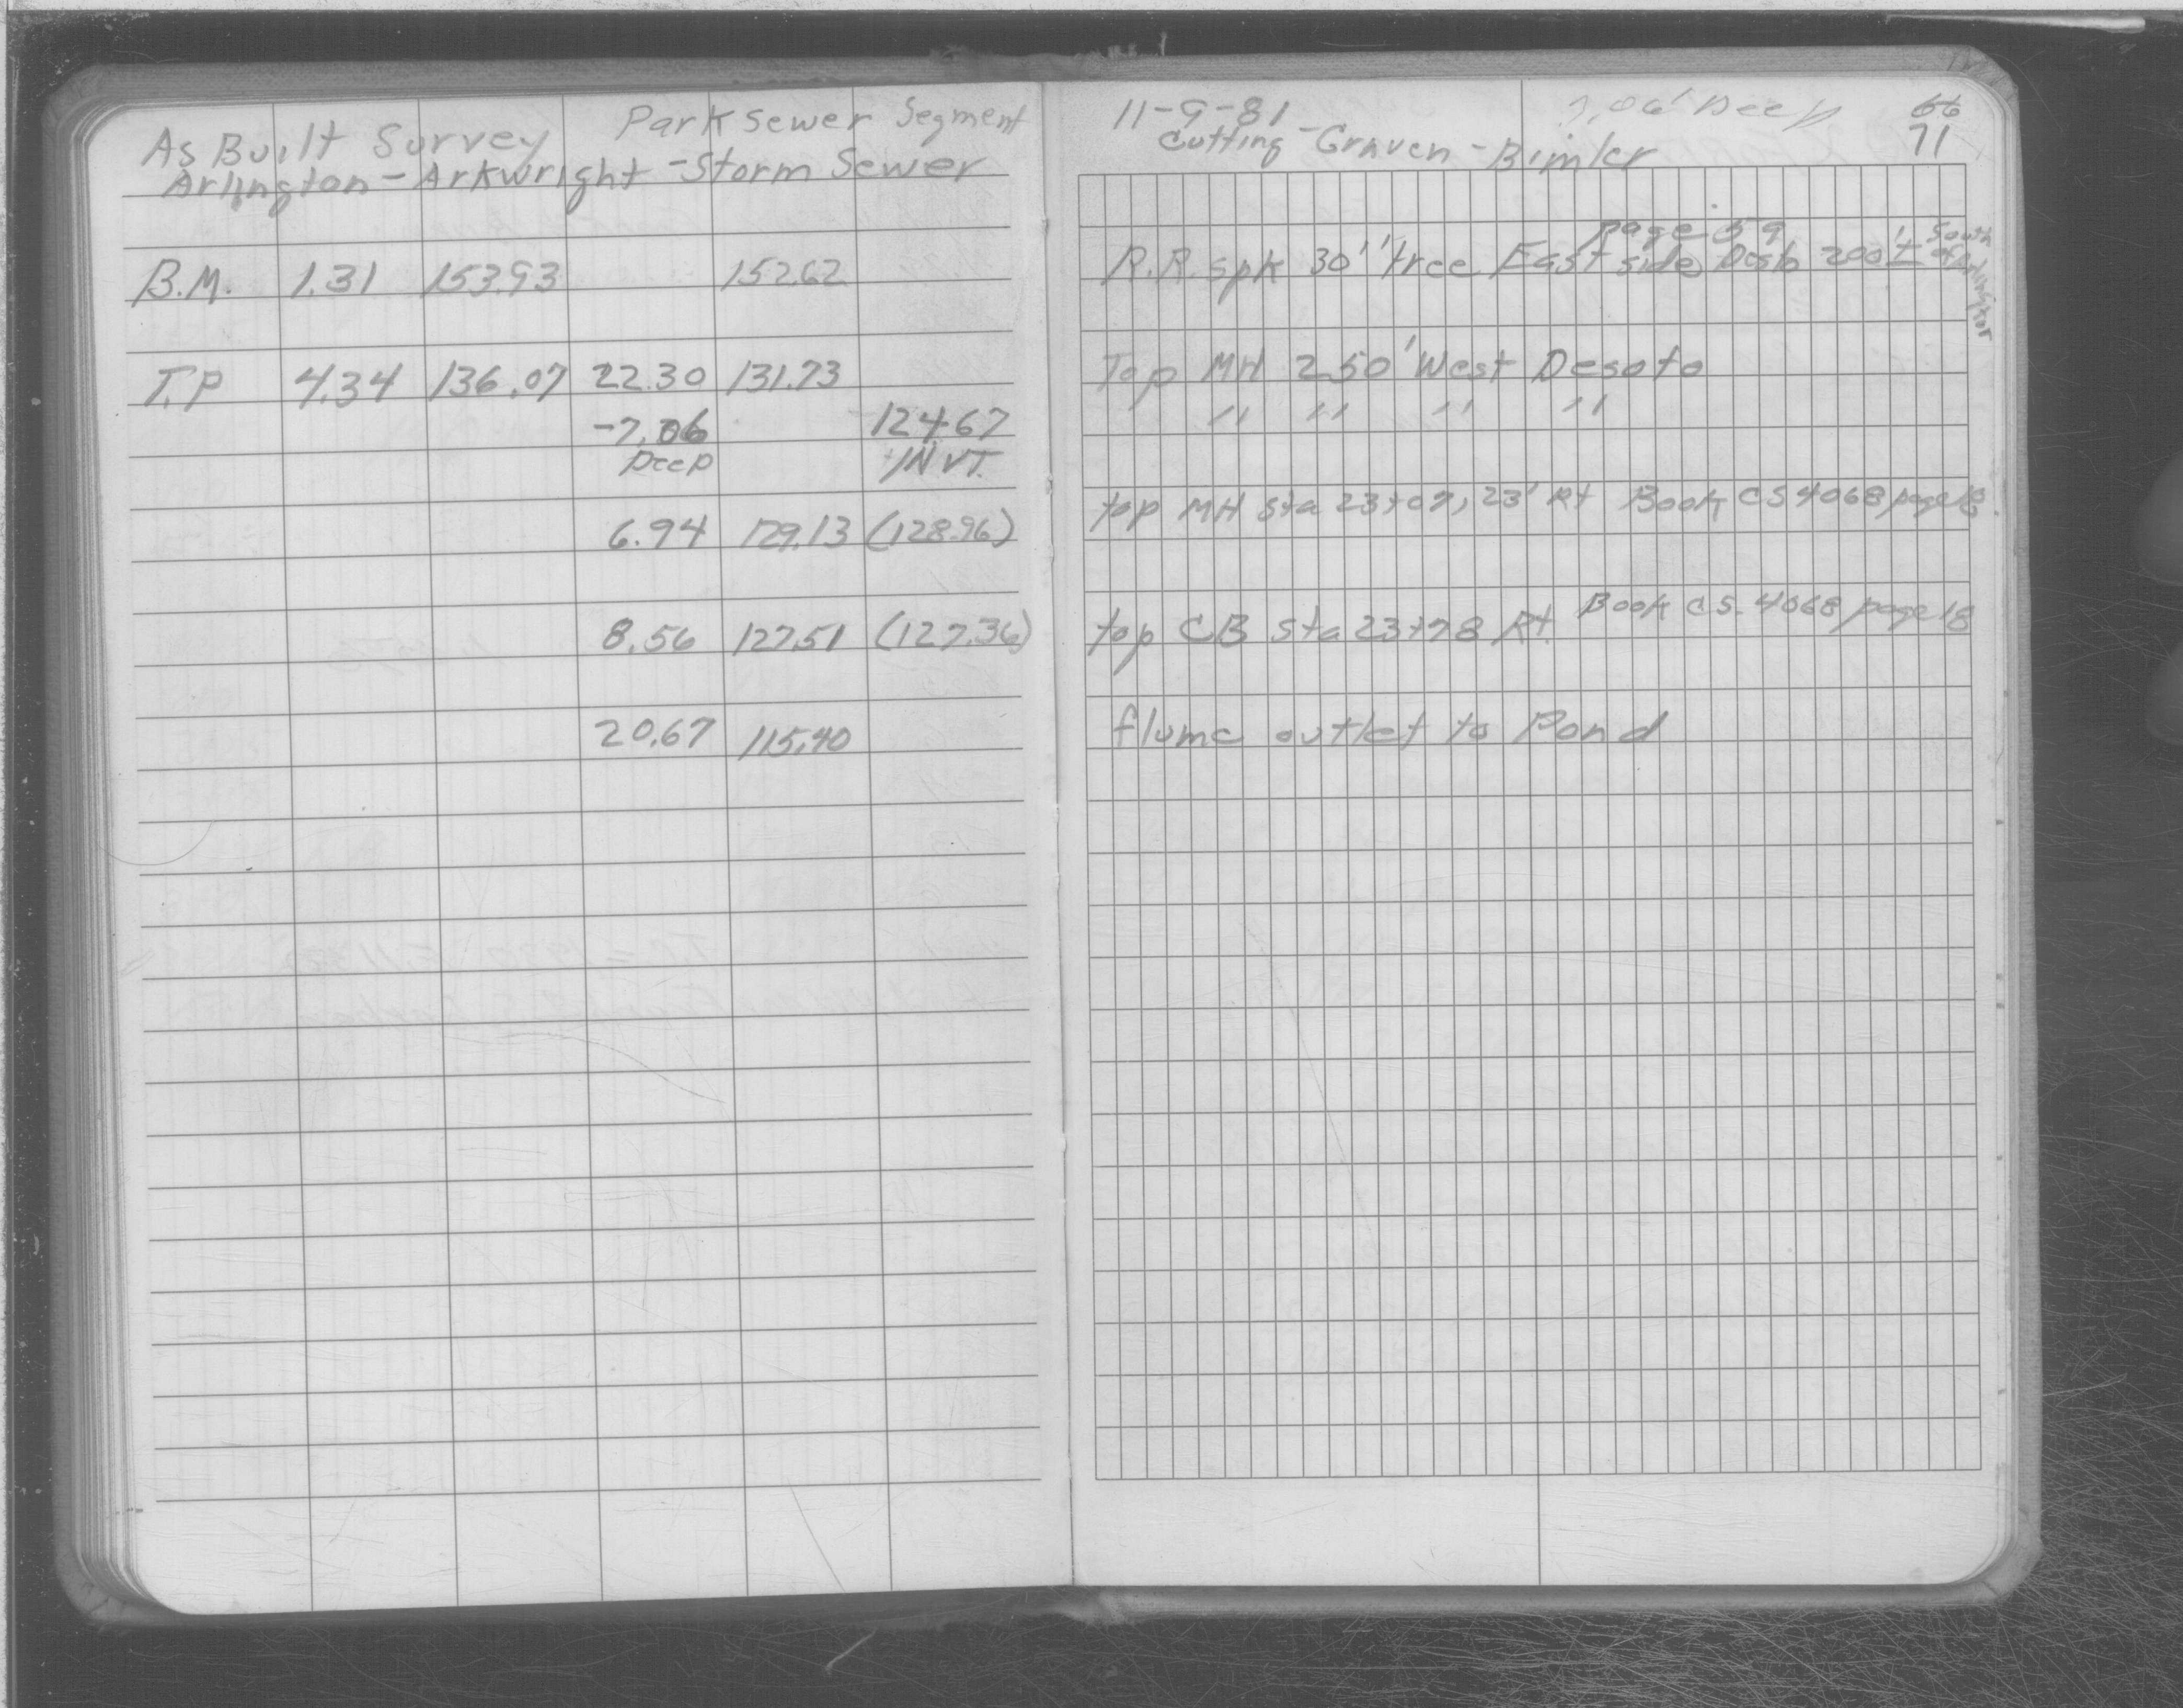 Park Sewer Segment
As Built Survey
Arlington - Arkwright - Storm Sewer
B.M. 1.31 153.93 152.62
T.P 4.34 136.07 22.30 131.73
-7.06 124.67
Deep INVT.
6.94 129.13 (128.96)
8.56 127.51 (127.36)
20.67 115.40
11-9-81 7.06' Deep 66
71
Cutting - Graven - Bimler
page 59
R.R. spk 30" tree East side Desoto 200'± South of Arlington
Top MH 250' West Desoto
" " " "
top MH sta 23+07, 23' Rt Book CS 4068 page 18
top CB Sta 23+78 Rt. Book CS-4068 page 18
flume outlet to Pond